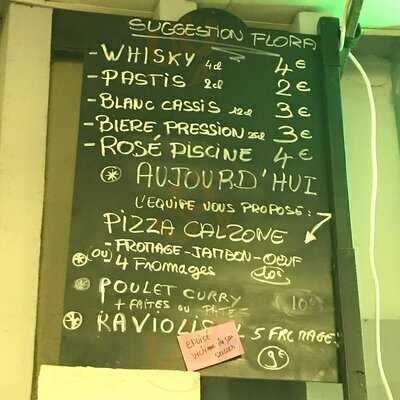 SUGGESTION FLORA
- WHISKY 4cl 4€
- PASTIS 2cl 2€
- BLANC CASSIS 12cl 3€
- BIERE PRESSION 25cl 3€
- ROSÉ PISCINE 4€
* AUJOURD'HUI
L'EQUIPE VOUS PROPOSE:
PIZZA CALZONE
- FROMAGE-JAMBON-OEUF
* (OU) 4 FROMAGES 10€
* POULET CURRY
+ FRITES OU PATES 10€
* RAVIOLIS 5 FROMAGES
9€